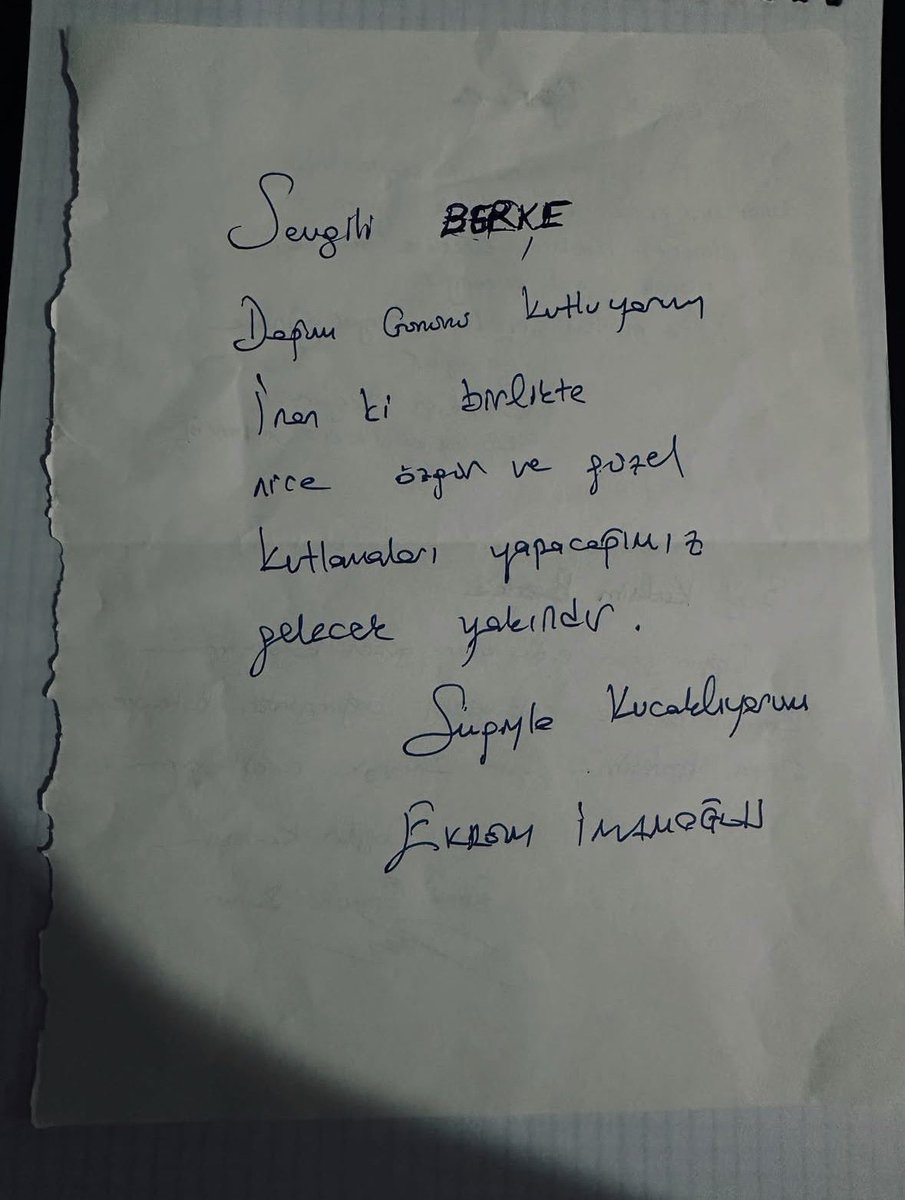 Sevgili BERKE,
Doğum Gününü Kutluyorum
İnan ki birlikte
nice özgür ve güzel
kutlamaları yapacağımız
gelecek yakındır.
Sevgiyle Kucaklıyorum
EKREM İMAMOĞLU